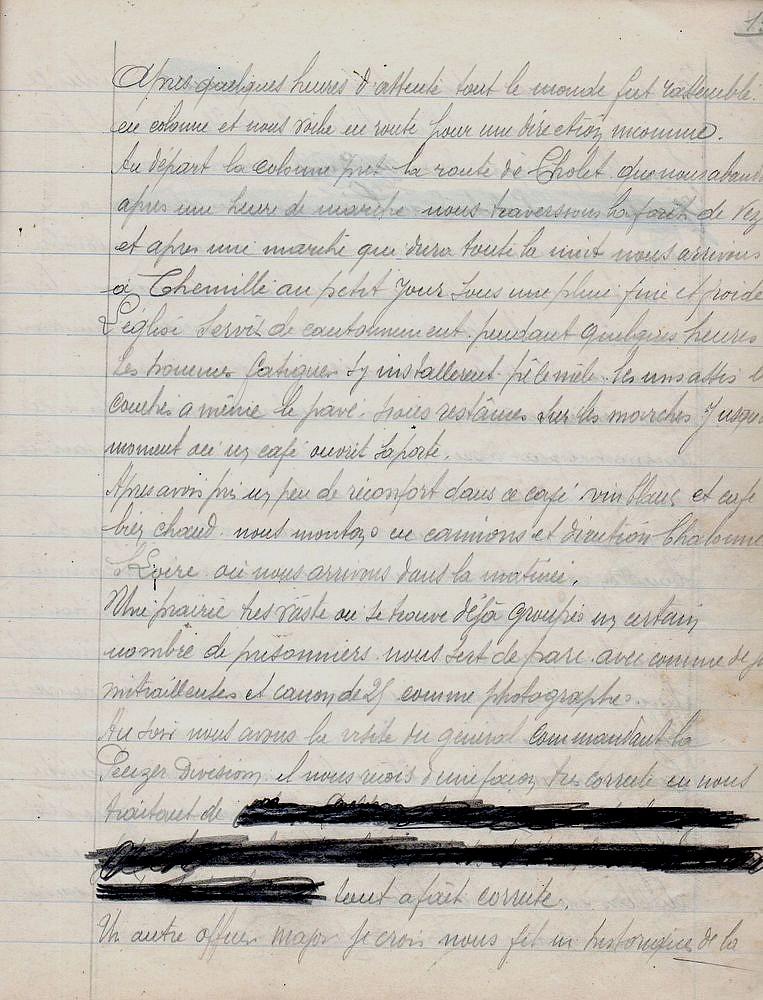 Après quelques heures d'attente tout le monde fut rassemblé
en colonne et nous voila en route pour une direction inconnue.
Au départ la colonne prit la route de Cholet que nous aband
après une heure de marche nous traversons la forêt de Vez
et apres une marche qui dura toute la nuit nous arrivons
à Chemillé au petit jour sous une pluie fine et froide
L'église servit de cantonnement pendant quelques heures
Les hommes fatigués s'y installerent pêle mêle les uns assis
couchés a même le pavé restâmes sur les marches jusqu
moment ou un café ouvrit sa porte.
Apres avoir pris un peu de réconfort dans ce café vin blanc et cafe
bien chaud nous montons en camions et direction Chalonne
s/Loire ou nous arrivons dans la matinée.
Une prairie tres vaste ou se trouve déjà groupés un certain
nombre de prisonniers nous sert de parc avec comme de
mitrailleuses et canon de 25 comme photographe.
Au soir nous avons la visite du général commandant la
Penzer Division il nous recois d'une façon tres correcte en nous
traitant de
tout a fait correcte.
Un autre officier major je crois nous fit un historique de la